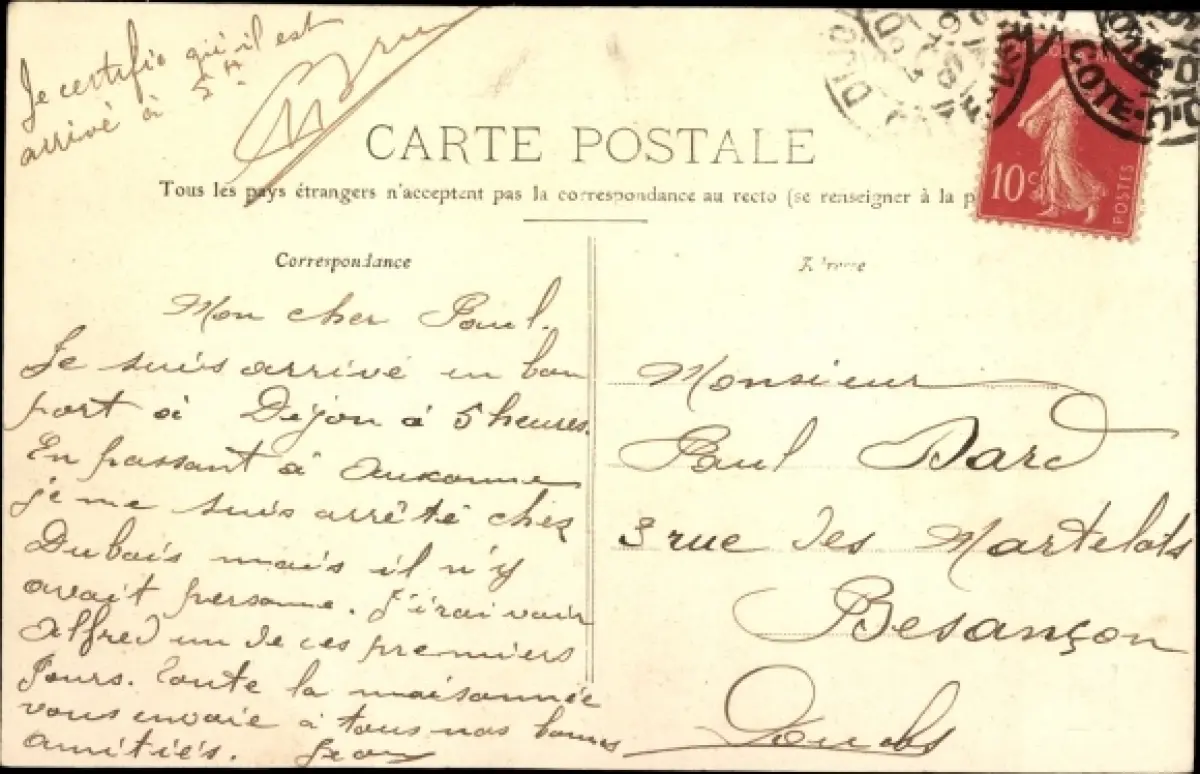 Je certifie qu'il est
arrivé à 5 H.
CARTE POSTALE
Tous les pays étrangers n'acceptent pas la correspondance au recto (se renseigner à la p
Correspondance
Mon cher Paul.
Je suis arrivé en bon
port à Dijon à 5 heures.
En passant à Auxonne
je me suis arrêté chez
Dubois mais il n'y
avait personne. J'irai voir
Alfred un de ces premiers
Jours. Toute la maisonnée
vous envoie à tous nos bonnes
amitiés.
Adresse
Monsieur
Paul Dard
3 rue des Martelots
Besançon
Doubs
10 c
POSTES
DIJON
COTE-D'